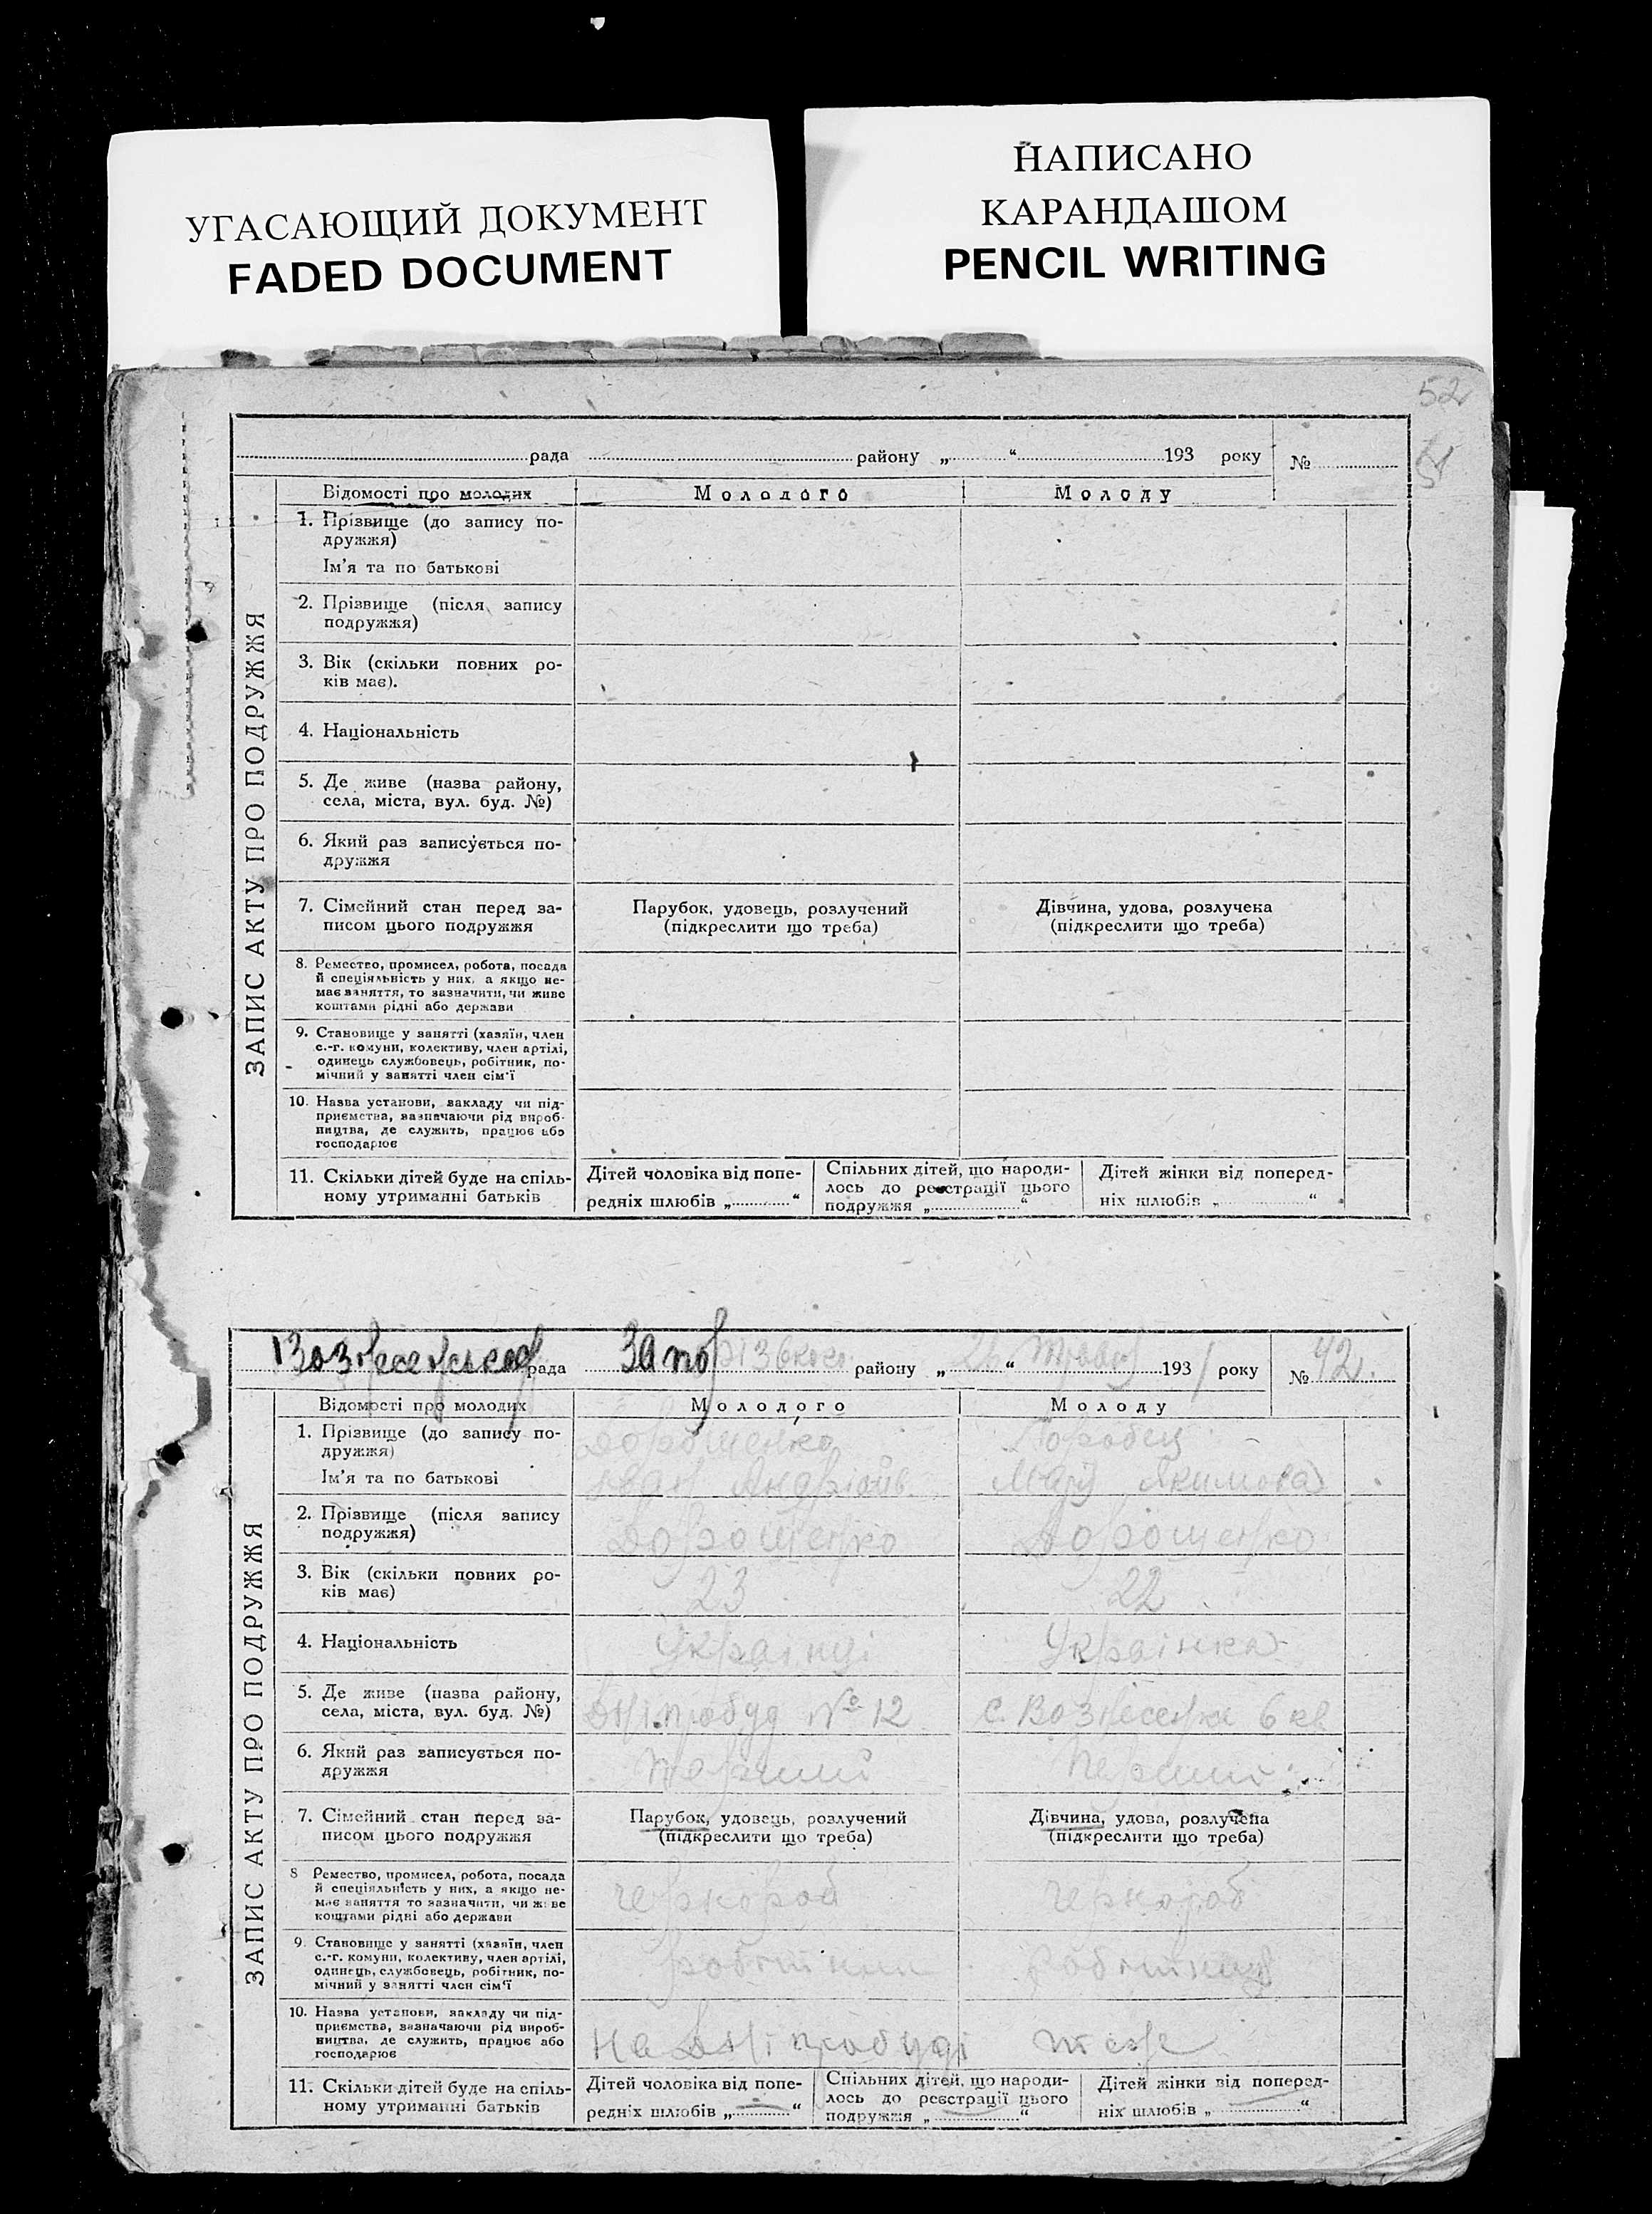 УГАСАЮЩИЙ ДОКУМЕНТ
FADED DOCUMENT
НАПИСАНО
КАРАНДАШОМ
PENCIL WRITING
52
рада району „ “ 193 року №
ЗАПИС АКТУ ПРО ПОДРУЖЖЯ
Відомості про молодих Молодого Молоду
1. Прізвище (до запису по-
дружжя)
Ім’я та по батькові
2. Прізвище (після запису
подружжя)
3. Вік (скільки повних ро-
ків має).
4. Національність
5. Де живе (назва району,
села, міста, вул. буд. №)
6. Який раз записується по-
дружжя
7. Сімейний стан перед за- Парубок, удовець, розлучений Дівчина, удова, розлучена
писом цього подружжя (підкреслити що треба) (підкреслити що треба)
8. Ремество, промисел, робота, посада
й спеціяльність у них, а якщо не-
має заняття, то зазначити, чи живе
коштами рідні або держави
9. Становище у занятті (хазяїн, член
с.-г. комуни, колективу, член артілі,
одинець службовець, робітник, по-
мічний у занятті член сім’ї
10. Назва установи, закладу чи під-
приємства, зазначаючи рід вироб-
ництва, де служить, працює або
господарює
11. Скільки дітей буде на спіль- Дітей чоловіка від попе- Спільних дітей, що народи- Дітей жінки від поперед-
ному утриманні батьків редніх шлюбів „ “ лось до реєстрації цього ніх шлюбів „ “
подружжя „ “
Вознесенська рада Запорізького району „ “ 1931 року № 42.
ЗАПИС АКТУ ПРО ПОДРУЖЖЯ
Відомості про молодих Молодого Молоду
1. Прізвище (до запису по- Дорошенко
дружжя)
Ім’я та по батькові Іван Андрійов Якимова
2. Прізвище (після запису Дорошенко Дорошенко
подружжя)
3. Вік (скільки повних ро- 23 22
ків має)
4. Національність Українці Українка
5. Де живе (назва району, Дніпробуд № 12 с. Вознесенка 6 кв
села, міста, вул. буд. №)
6. Який раз записується по- перший перший
дружжя
7. Сімейний стан перед за- Парубок, удовець, розлучений Дівчина, удова, розлучена
писом цього подружжя (підкреслити що треба) (підкреслити що треба)
8 Ремество, промисел, робота, посада
й спеціяльність у них, а якщо не- чернороб чернороб
має заняття то зазначити, чи живе
коштами рідні або держави
9. Становище у занятті (хазяїн, член
с.-г. комуни, колективу, член артілі, робітник робітниця
одинець, службовець, робітник, по-
мічний у занятті член сім’ї
10. Назва установи, закладу чи під-
приємства, зазначаючи рід вироб-
ництва, де служить, працює або на Дніпробуді теж
господарює
11. Скільки дітей буде на спіль- Дітей чоловіка від попе- Спільних дітей, що народи- Дітей жінки від поперед-
ному утриманні батьків редніх шлюбів „ “ лось до реєстрації цього ніх шлюбів „ “
подружжя „ “